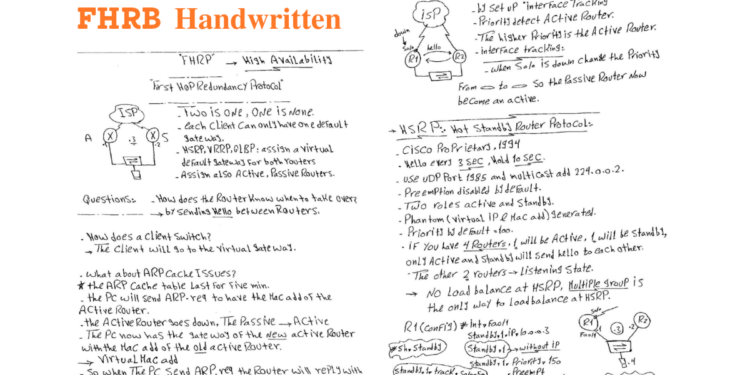 FHRB Handwritten
"FHRP" → High Availability
"First Hop Redundancy Protocol"
ISP
A
X
X
S
.1
.2
.3
- Two is one, one is none.
- each client can only have one default
gateway.
- HSRP, VRRP, GLBP: assign a virtual
default gateway for both routers
- Assign also Active, Passive Routers.
Questions: - How does the Router know when to take over?
→ by sending Hello between Routers.
- How does a client switch?
→ The client will go to the virtual gateway.
- What about ARP Cache Issues?
* the ARP Cache table last for five min.
- the PC will send ARP-req to have the Mac add of the
Active Router.
- the Active Router goes down, The Passive → Active
- The PC now has the gateway of the new active Router
with the Mac add of the old active Router.
→ Virtual Mac add
- So when The PC Send ARP.req the Router will reply with
iSP
down
So/o
hello
R1
R2
- by set up "interface Tracking
- Priority detect Active Router.
- The higher Priority is the Active Router.
- interface tracking:
- when So/o is down change the Priority
From to So the Passive Router now
become an active.
→ HSRP: Hot Standby Router Protocol:
- Cisco Proprietary, 1994
- Hello every 3 sec, Hold 10 sec.
- use UDP Port 1985 and multicast add 224.0.0.2.
- Preemption disabled by default.
- Two roles active and standby.
- Phantom (virtual IP & Mac add) generated.
- Priority by default = 100.
- if You have 4 Routers, 1 will be Active, 1 will be standby,
only Active and standby will send hello to each other.
- The other 2 routers → Listening State.
→ No load balance at HSRP, Multiple group is
the only way to load balance at HSRP.
R1(config)# int fa0/1
Standby.1.ip.10.0.0.3
#sh.standby
Standby.1 → without ip
Standby.1.Priority.150
Preempt
R1
R2
So/o
.3
3.4